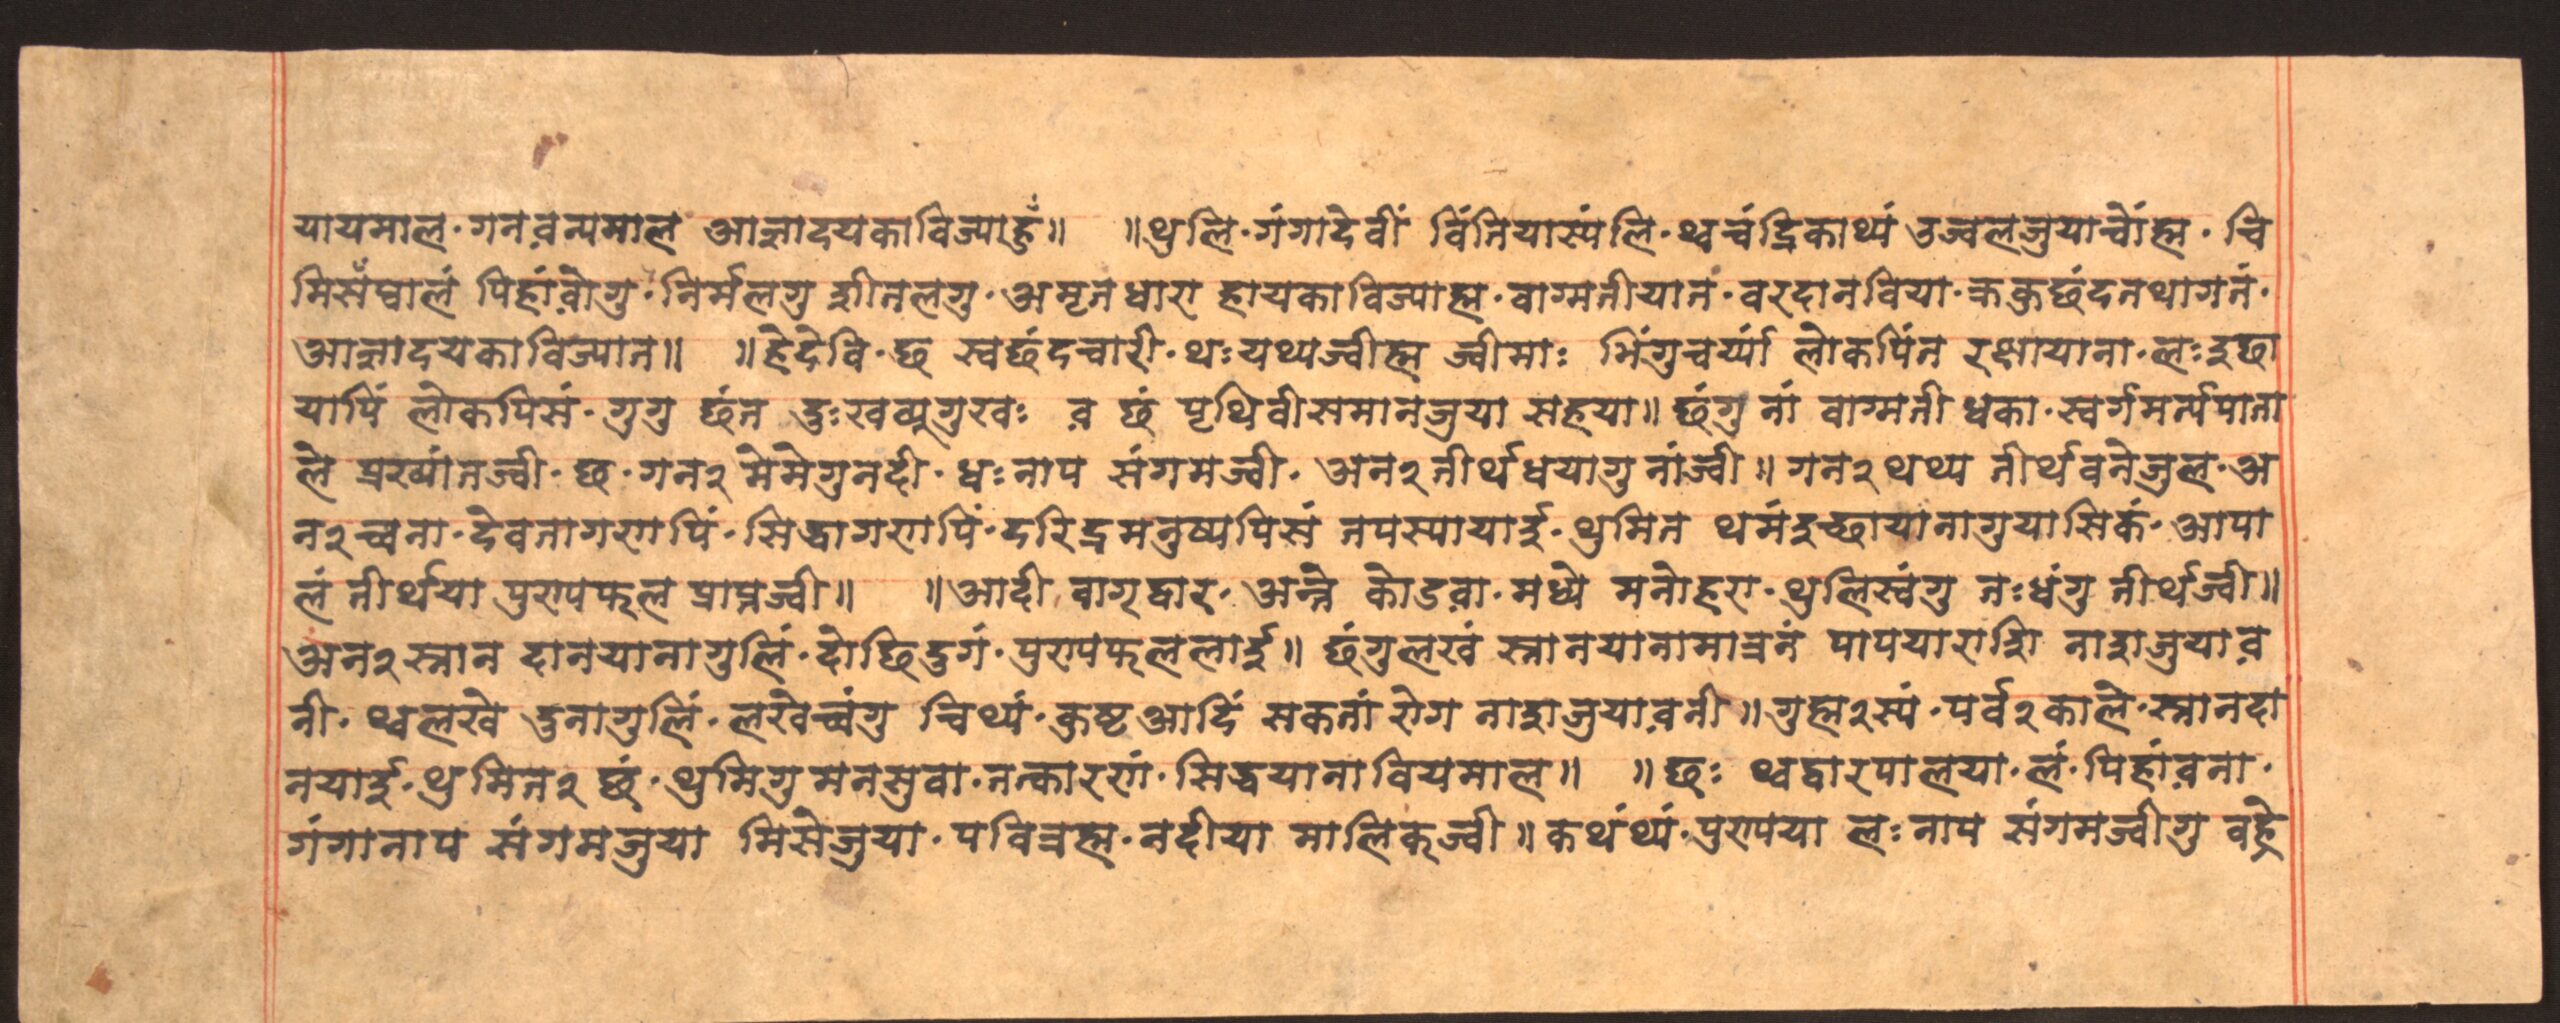 यायमाल॰ गन व़न्यमाल आज्ञादयकाविज्याहुँ॥ ॥थुलि॰ गंगादेवीं विंतियास्यंलि॰ थ्वचंद्रिकाथ्यं उज्वलजुयाच्वोंह्म॰ चि
मिसँप्वालं पिहांव़ोगु॰ निर्मलगु शीतलगु॰ अमृतधारा हायकाविज्याह्म॰ वाग्मतीयात॰ वरदानविया॰ क्रकुछंदतथागतं॰
आज्ञादयकाविज्यात॥ ॥हेदेवि॰ छ स्वछंदचारी॰ थःयथ्यज्वीह्म ज्वीमाः भिंगुचर्य्यां लोकपिंत रक्षायाना॰ लःइछा
यापिं लोकपिसं॰ गुगु छंत दुःखब्यूगुखः व़ छं पृथिवीसमानजुया सहया॥ छंगु नां वाग्मती धका॰ स्वर्गमर्त्यपाता
ले प्रख्यांतज्वी॰ छ॰ गन२ मेमेगुनदी॰ धःनाप संगमज्वी॰ अन२ तीर्थधयागु नांज्वी॥ गन२ थथ्य तीर्थवनेजुल॰ अ
न२ च्वना॰ देवनागगणपिं॰ सिद्धागणपिं॰ दरिद्रमनुष्यपिसं तपस्यायाई॰ थुमित थमंइच्छायानागुयासिकं॰ आपा
लं तीर्थया पुण्यफल प्राप्तज्वी॥ ॥आदी वाग्द्वार॰ अन्ते कोडव़ा॰ मध्ये मनोहरा॰ थुलिस्वंगु तःधंगु तीर्थज्वी॥
अन२ स्नान दानयानागुलिं॰ दोछिदुगं॰ पुण्यफललाई॥ छंगुलखं स्नानयानामात्रनं पापयाराशि नाशजुयाव़
नी॰ थ्वलखे दुनागुलिं॰ लखेच्वंगु चिथ्यं॰ कुष्टआदिं सकतां रोग नाशजुयाव़नी॥ गुह्म२स्यं॰ पर्व२काले॰ स्नानदा
नयाई॰ थुमित२ छं॰ थुमिगु मनसुवा॰ तत्कारणं॰ सिद्धयानावियमाल॥ ॥छः थ्वद्वारपालया॰ लं॰ पिहांव़ना॰
गंगानाप संगमजुया मिसेजुया॰ पवित्रह्म॰ नदीया मालिकज्वी॥ कथंथ्यं॰ पुण्यया लःनाप संगमज्वीगु वह्रे